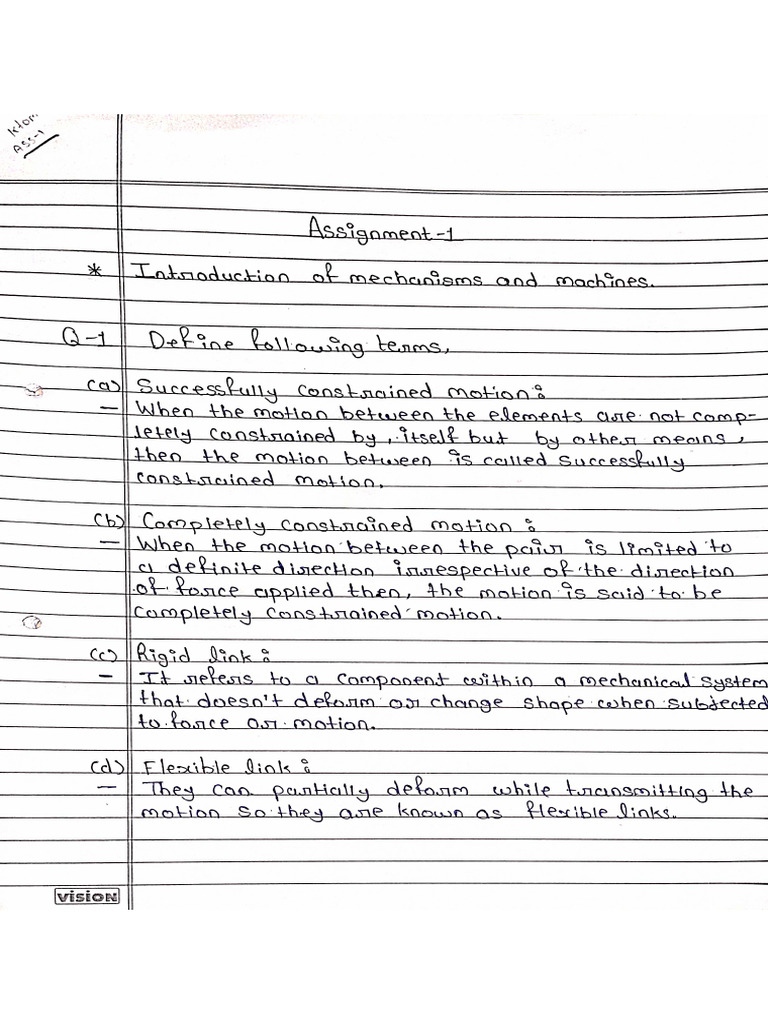 Ktom
Ass-1
Assignment-1
* Introduction of mechanisms and machines.
Q-1 Define following terms,
(a) Successfully constrained motion:
- When the motion between the elements are not comp-
letely constrained by, itself but by other means,
then the motion between is called successfully
constrained motion.
(b) Completely constrained motion:
- When the motion between the pair is limited to
a definite direction irrespective of the direction
of force applied then, the motion is said to be
completely constrained motion.
(c) Rigid link:
- It refers to a component within a mechanical system
that doesn't deform or change shape when subjected
to force or motion.
(d) Flexible link:
- They can partially deform while transmitting the
motion so they are known as flexible links.
vision